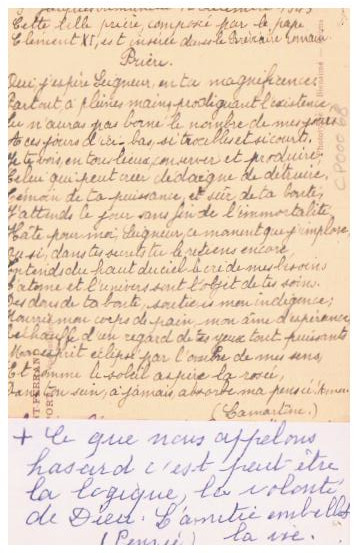 Cette belle prière, composée par le pape
Clément XI, est insérée dans le Bréviaire romain
Prière.
Oui j'espère Seigneur, en ta magnificence
Partout à pleines mains prodiguant l'existence
Tu n'auras pas borné le nombre de mes jours
A ces jours d'ici-bas, si troublés et si courts.
Je te vois, en tous lieux, conserver et produire;
Celui qui peut créer dédaigne de détruire.
Témoin de ta puissance, et sûr de ta bonté,
J'attends le jour sans fin de l'immortalité
Hâte pour moi, Seigneur, ce moment que j'implore
Ou si, dans tes secrets tu le retiens encore
Entends du haut du ciel le cri de mes besoins
L'atome et l'univers sont l'objet de tes soins.
Des dons de ta bonté, soutiens mon indigence;
Nourris mon corps de pain, mon âme d'espérance
Réchauffe d'un regard de tes yeux tout puissants
Mon esprit éclipsé par l'ombre de mes sens
Et comme le soleil aspire la rosée,
Dans ton sein, à jamais absorbe ma pensée.
(Lamartine.)
+ Ce que nous appelons
hasard c'est peut être
la logique, la volonté
de Dieu. L'amitié embellit
(Pensée) la vie.
CP000 68